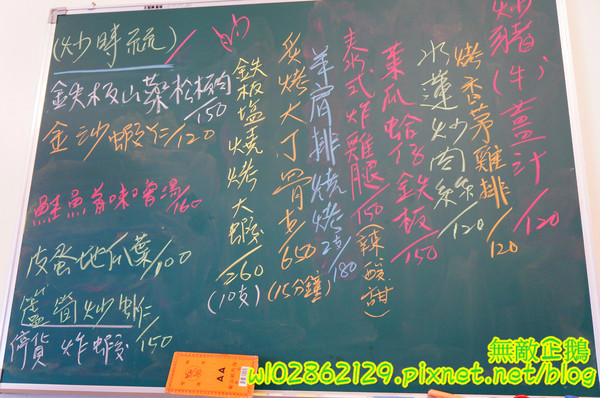 炒豬(牛)薑汁/120
烤香茅雞排120
水蓮炒肉絲/120
菜瓜蛤仔鉄板/150
泰式炸雞腿/150(辣酸甜)
羊肩排燒烤2支/180
炙烤大丁骨/650(15分鐘)
鉄板塩燒烤大蝦/260(10支)
(炒時疏)/
鉄板山藥松板肉/150
金沙蝦仁/120
鮭魚味噌湯/160
皮蛋地瓜葉/100
蘆筍炒蝦仁/150
停貨 炸蝦
AA
無敵企鵝
w102862129.pixnet.net/blog